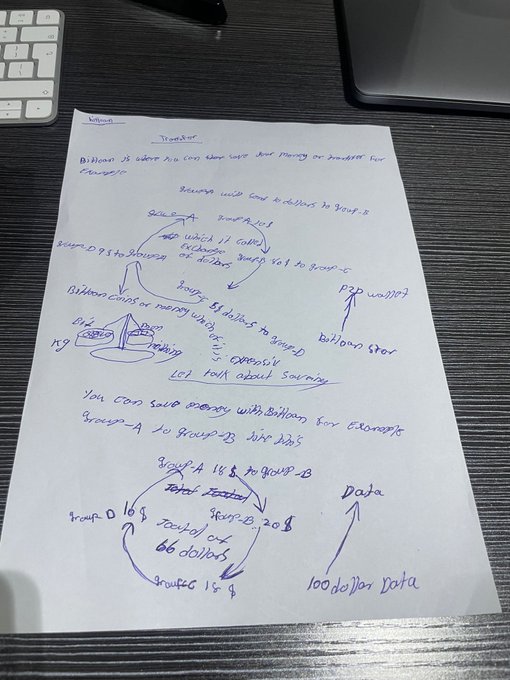 Bitloan
Transfer
Bitloan is where you can save your money or transfer for
Example
group-A will send 10 dollars to group-B
group-A group A 10$
which it called
exchange
of dollars
group-D 9$ to group-A
to group-C
group-C 8$ dollars to group-D
Bitloan coins or money which
is expensiv
Bit
mining
Kg
P2P wallet
Bitloan star
Let talk about Saving
You can save money with Bitloan for Example
group-A to group-B like this
group-A 18 $ to group-B
group-D 10 $
group-B 20 $
Total of
66 dollars
group-C 18 $
Data
100 dollar Data